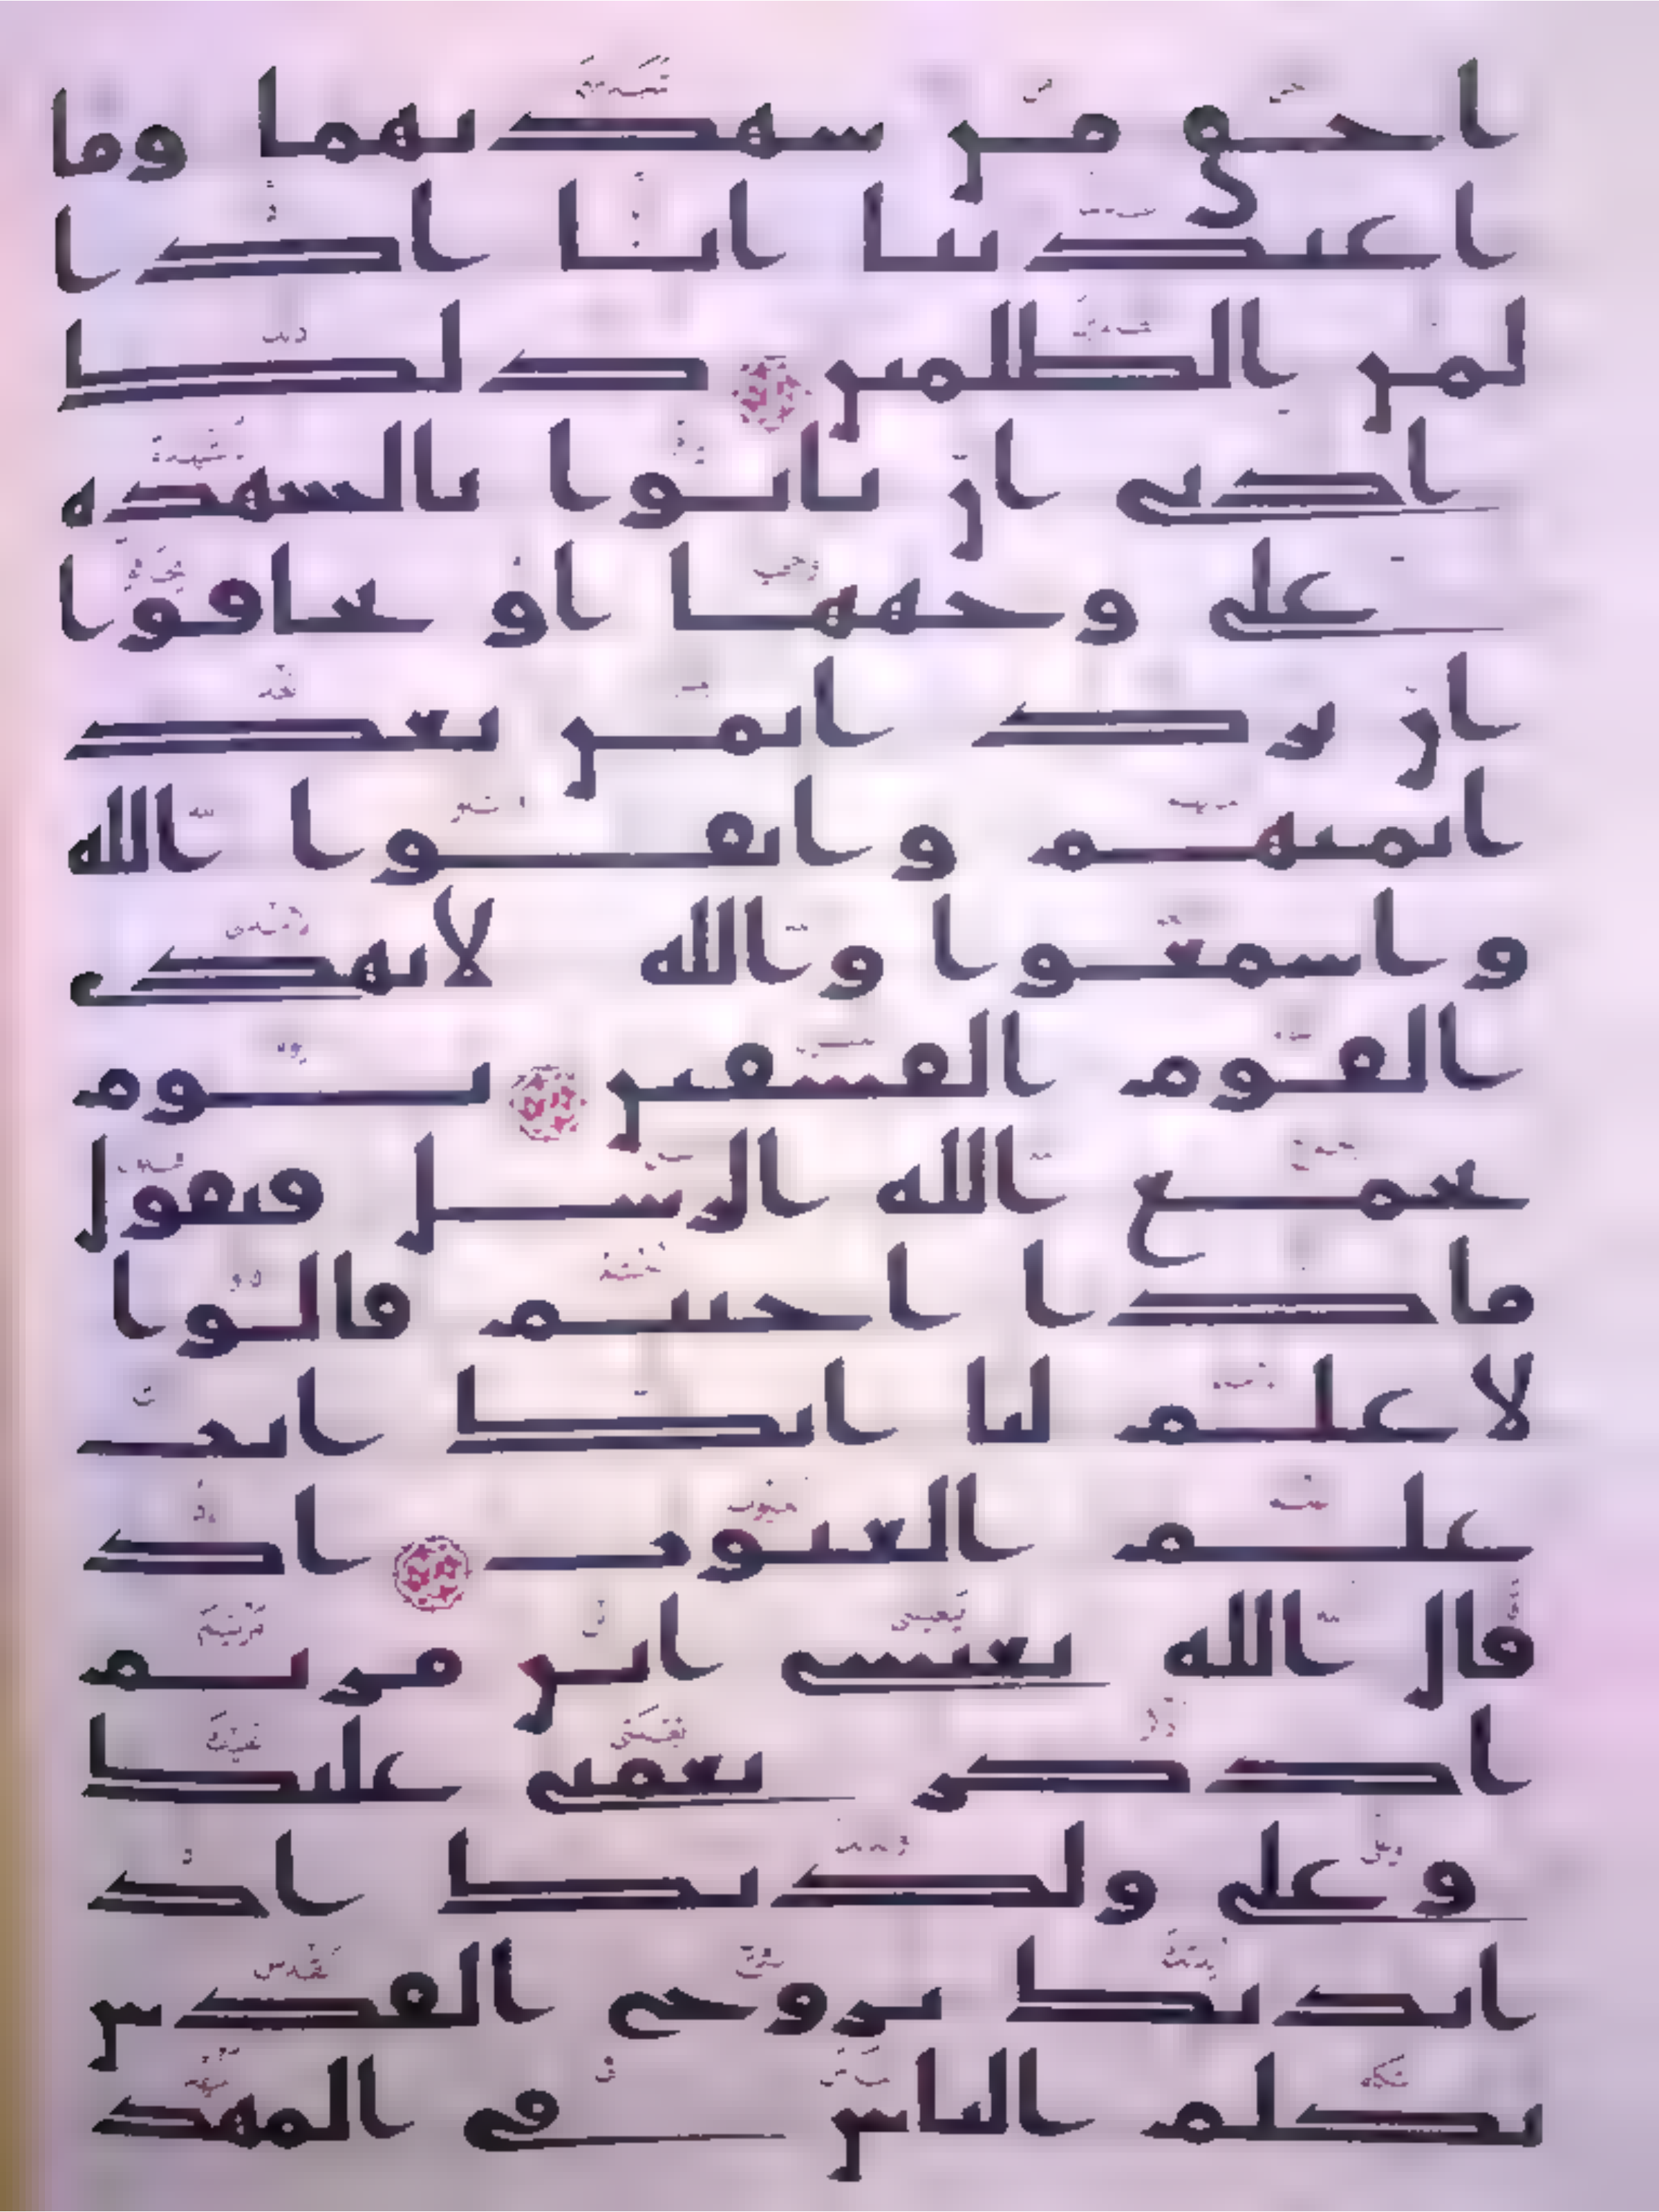 احق من شهدتهما وما
اعتدينا انا اذا
لمن الظلمين ذلك
ادنى ان ياتوا بالشهدة
على وجهها او يخافوا
ان ترد ايمن بعد
ايمنهم واتقوا الله
واسمعوا والله لا يهدى
القوم الفسقين يوم
يجمع الله الرسل فيقول
ماذا اجبتم قالوا
لا علم لنا انك انت
علم الغيوب اذ
قال الله يعيسى ابن مريم
اذكر نعمتى عليك
وعلى ولدتك اذ
ايدتك بروح القدس
تكلم الناس فى المهد